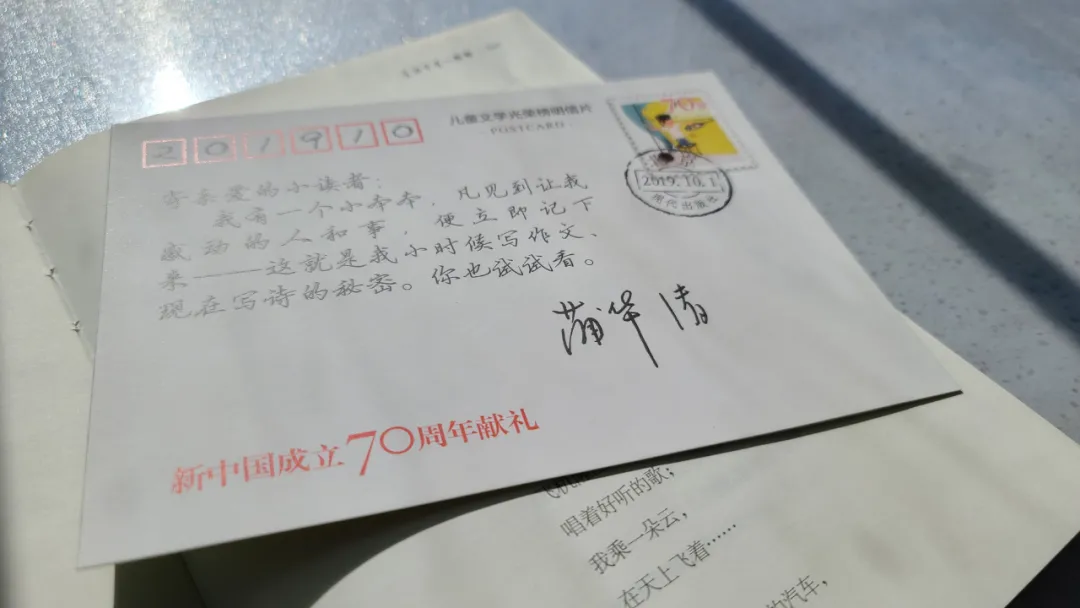 201910
儿童文学光荣榜明信片
POSTCARD
寄亲爱的小读者：
我有一个小本本，凡见到让我
感动的人和事，便立即记下
来——这就是我小时候写作文、
现在写诗的秘密。你也试试看。
蒲华清
新中国成立70周年献礼
70
2019.10.1
现代出版社
唱着好听的歌；
我乘一朵云，
在天上飞着……
的汽车，